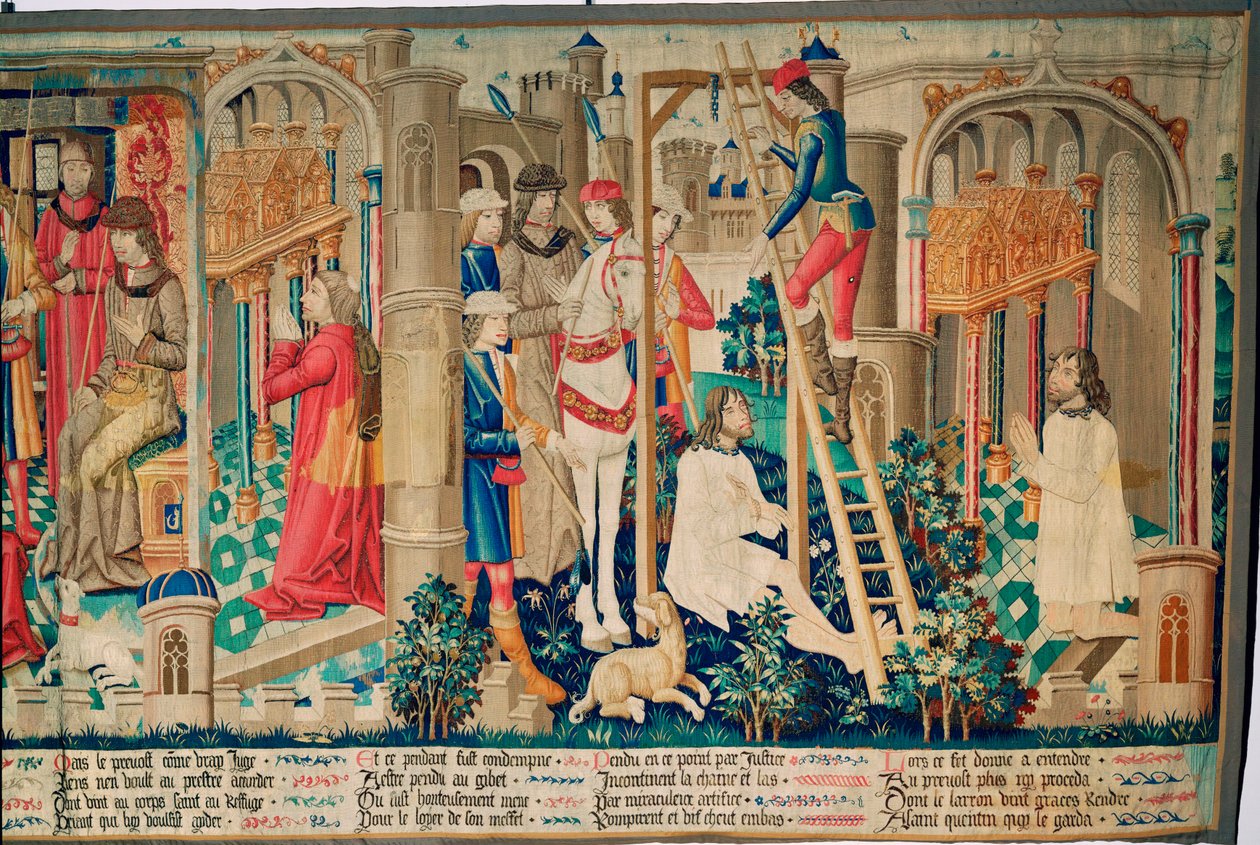 Mais le prevost cõme vray Juge
Riens nen voult au prestre accorder
Dont vint au corps saint au Reffuge
Priant quil luy voulsist ayder
Et ce pendant fust condempne
A estre pendu au gibet
Ou fust honteusement mene
Pour le loyer de son meffet
Pendu en ce point par Justice
Incontinent la chaine et las
Par miraculeux artifice
Rompirent et vif cheut embas
Lors ce fet donne a entendre
Au prevost plus ny proceda
Dont le larron vint graces Rendre
A saint quentin qui le garda